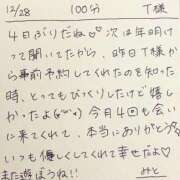 12/28 100分 T様
4日ぶりだね♡次は年明け
って聞いてたから、昨日T様から
事前予約してくれたのを知った
時、とってもびっくりしたけど嬉し
かったよ(^^)今月4回も会い
に来てくれて、本当にありがとう
いつも優しくしてくれて幸せだよ♡
また遊ぼうね!! みと